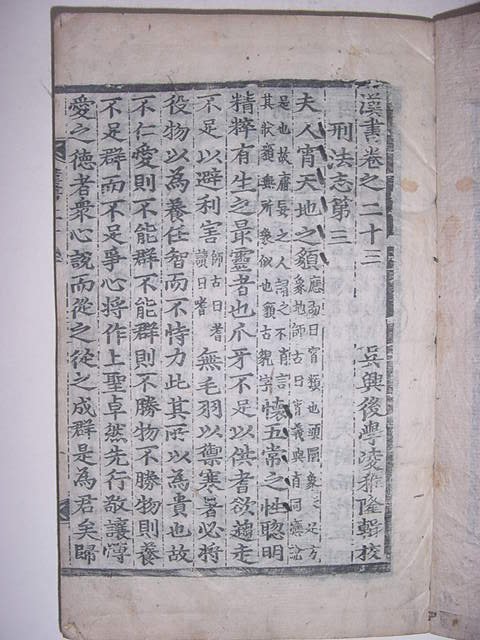 漢書卷之二十三　吳興後學凌稚隆輯校
刑法志第三
夫人宵天地之䫉應劭曰宵類也頭圜象天足方象地師古曰宵義與肖同應說
是也故庸妄之人謂之不肖言其狀䫉無所象似也䫉古貌字懷五常之性聰明
精粹有生之最靈者也爪牙不足以供耆欲趨走
不足以避利害師古曰耆讀曰嗜無毛羽以禦寒暑必將
役物以為養任智而不恃力此其所以為貴也故
不仁愛則不能群不能群則不勝物不勝物則養
不足群而不足爭心將作上聖卓然先行敬讓博
愛之德者衆心說而從之從之成群是為君矣歸